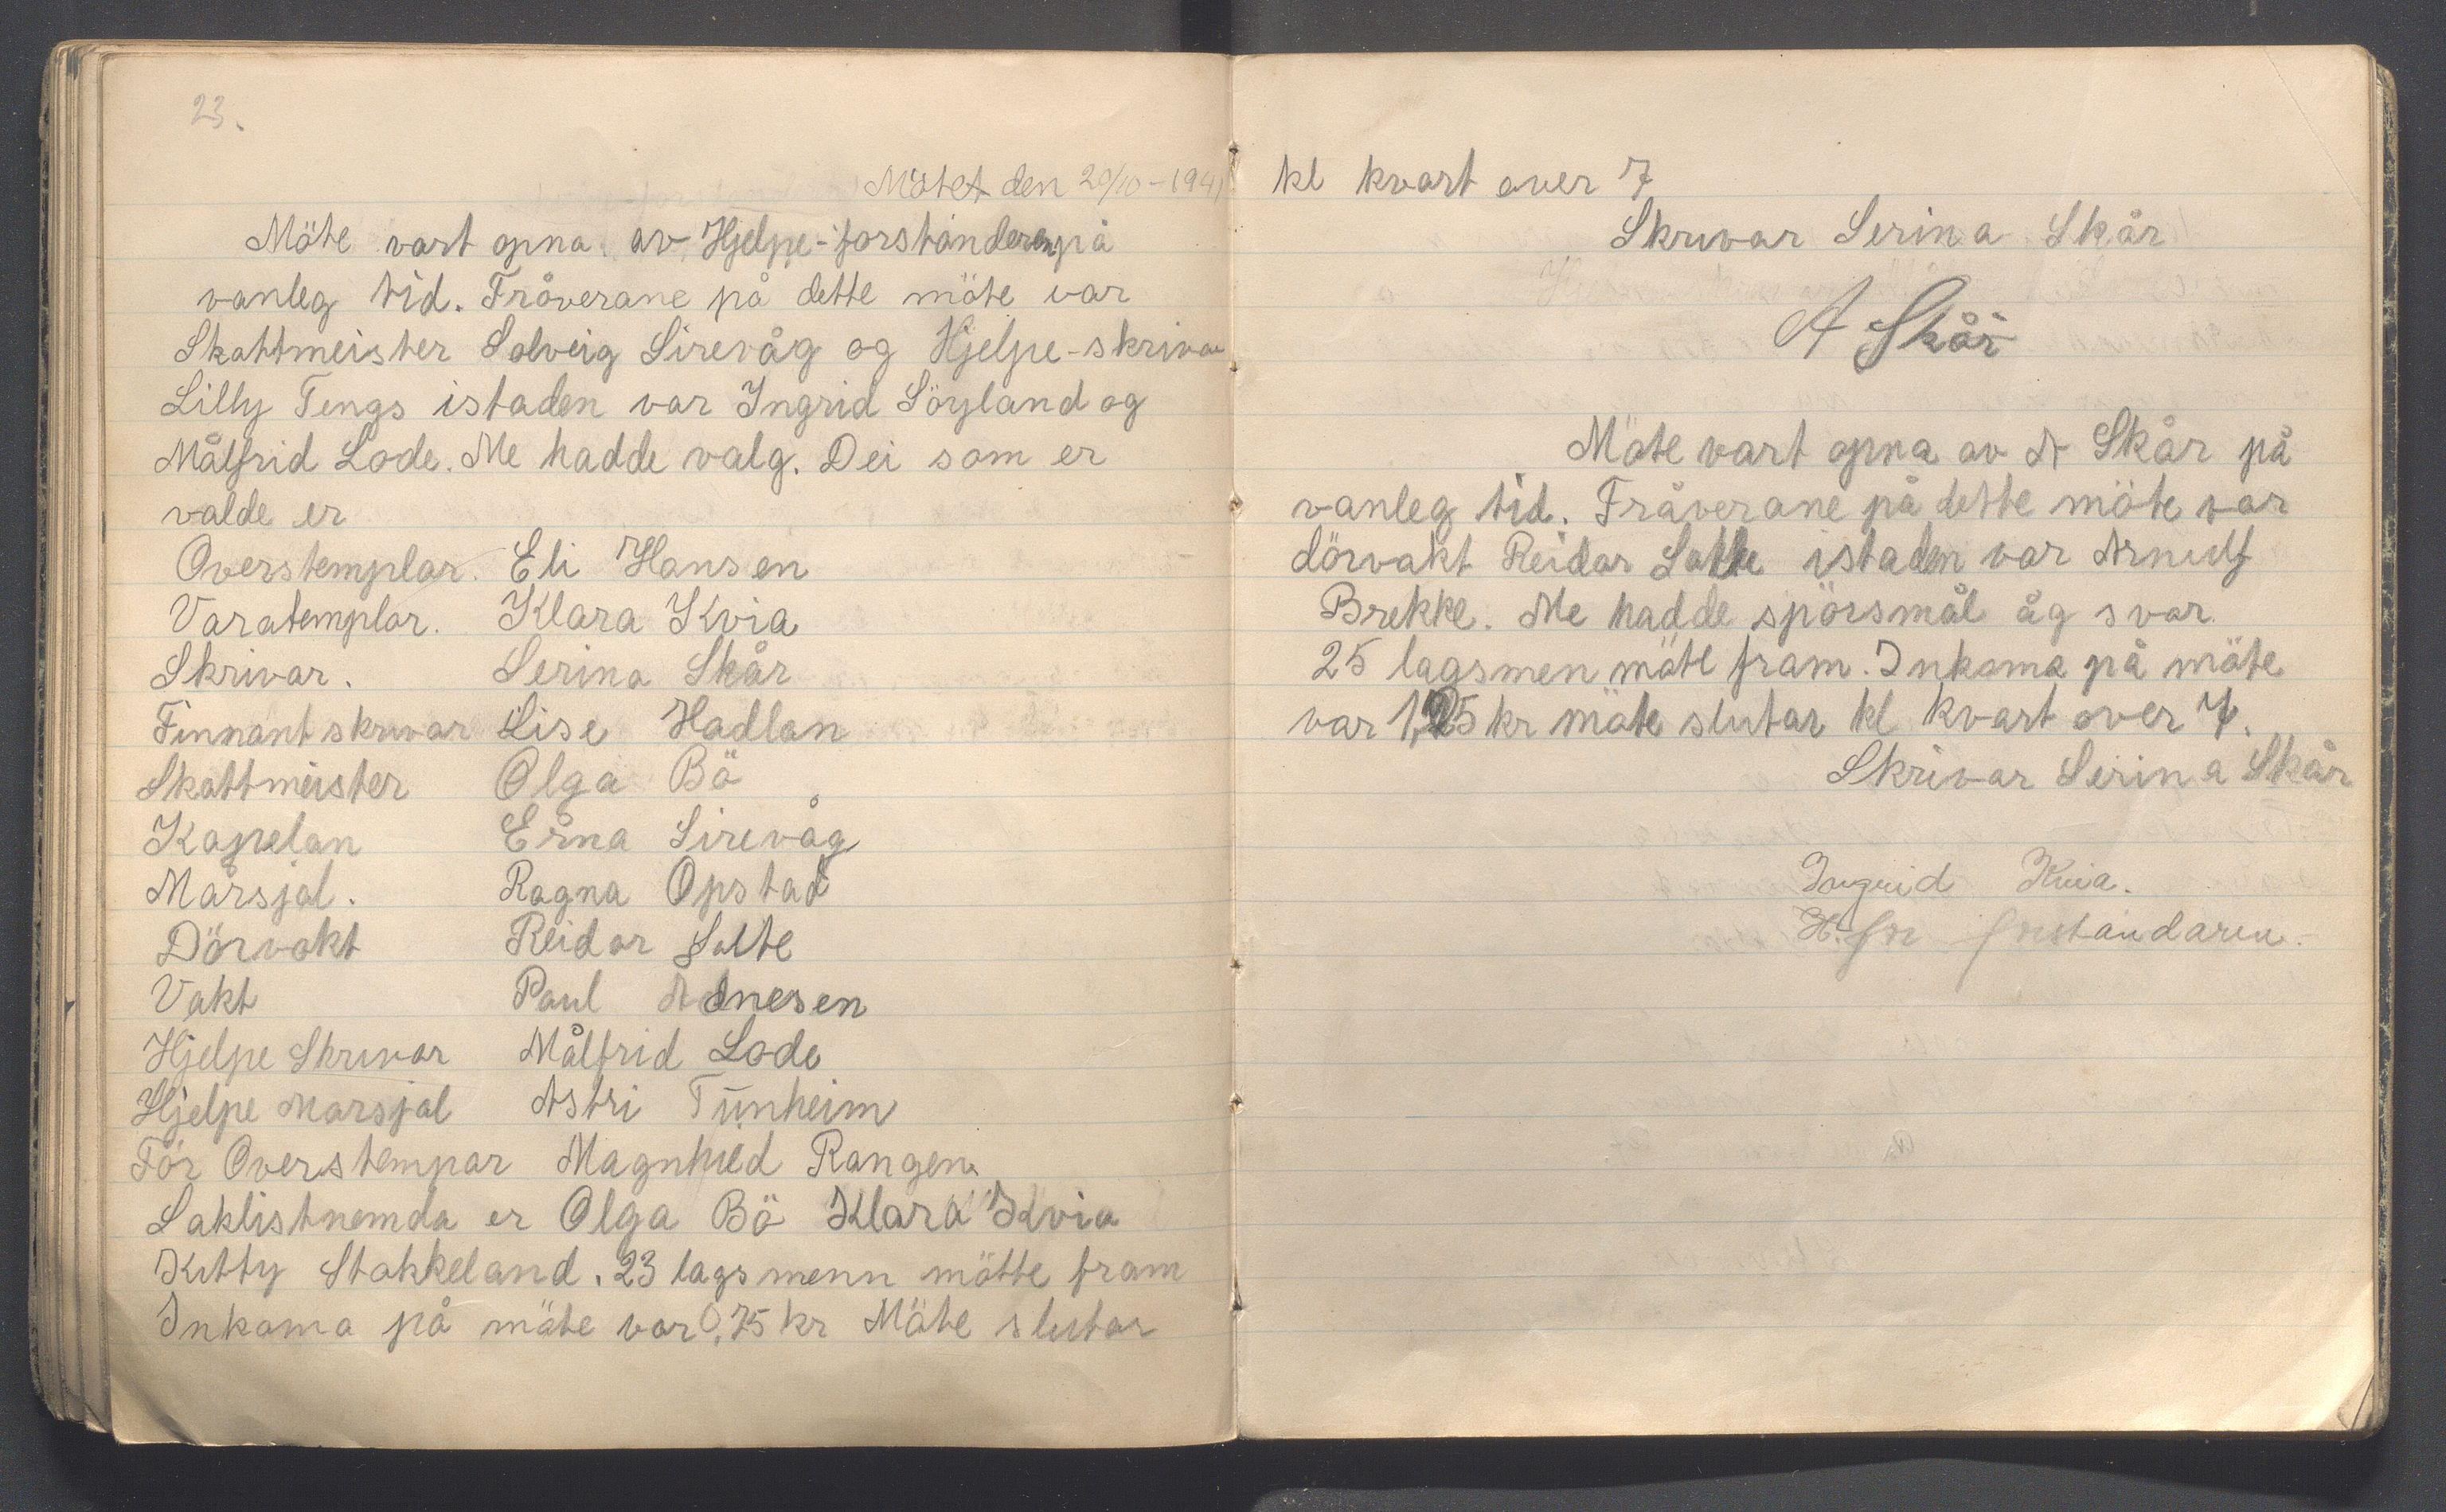 23.
Mötet den 20/10-1941
Möte vart opna av Hjelpe-forstanderen på
vanleg tid. Fråverane på dette möte var
Skattmeister Solveig Sirevåg og Hjelpe-skrivar
Lilly Tengs istaden var Ingrid Söyland og
Målfrid Lode. Me hadde valg. Dei som er
valde er
Overstemplar. Eli Hansen
Varatemplar. Klara Kvia
Skrivar. Serina Skår
Finnantskrivar Lise Hadlan
Skattmeister Olga Bö
Kapelan Erna Sirevåg
Marsjal. Ragna Opstad
Dörvakt Reidar Salte
Vakt Paul Adnesen
Hjelpe Skrivar Målfrid Lode
Hjelpe Marsjal Astri Tunheim
För Overstempar Magnhild Rangen.
Saklistnemda er Olga Bö Klara Kvia
Kitty Stokkeland. 23 lagsmenn mötte fram
Inkoma på möte var 0,75 kr Möte slutar
kl kvart over 7
Skrivar Serina Skår
A Skår
Möte vart opna av A Skår på
vanleg tid. Fråverane på dette möte var
dörvakt Reidar Salte istaden var Arnulf
Brekke. Me hadde spörsmål åg svar
25 lagsmen möte fram. Inkoma på möte
var 1,25 kr möte slutar kl kvart over 7.
Skrivar Serina Skår
Ingrid Kvia.
H. for forstandaren.